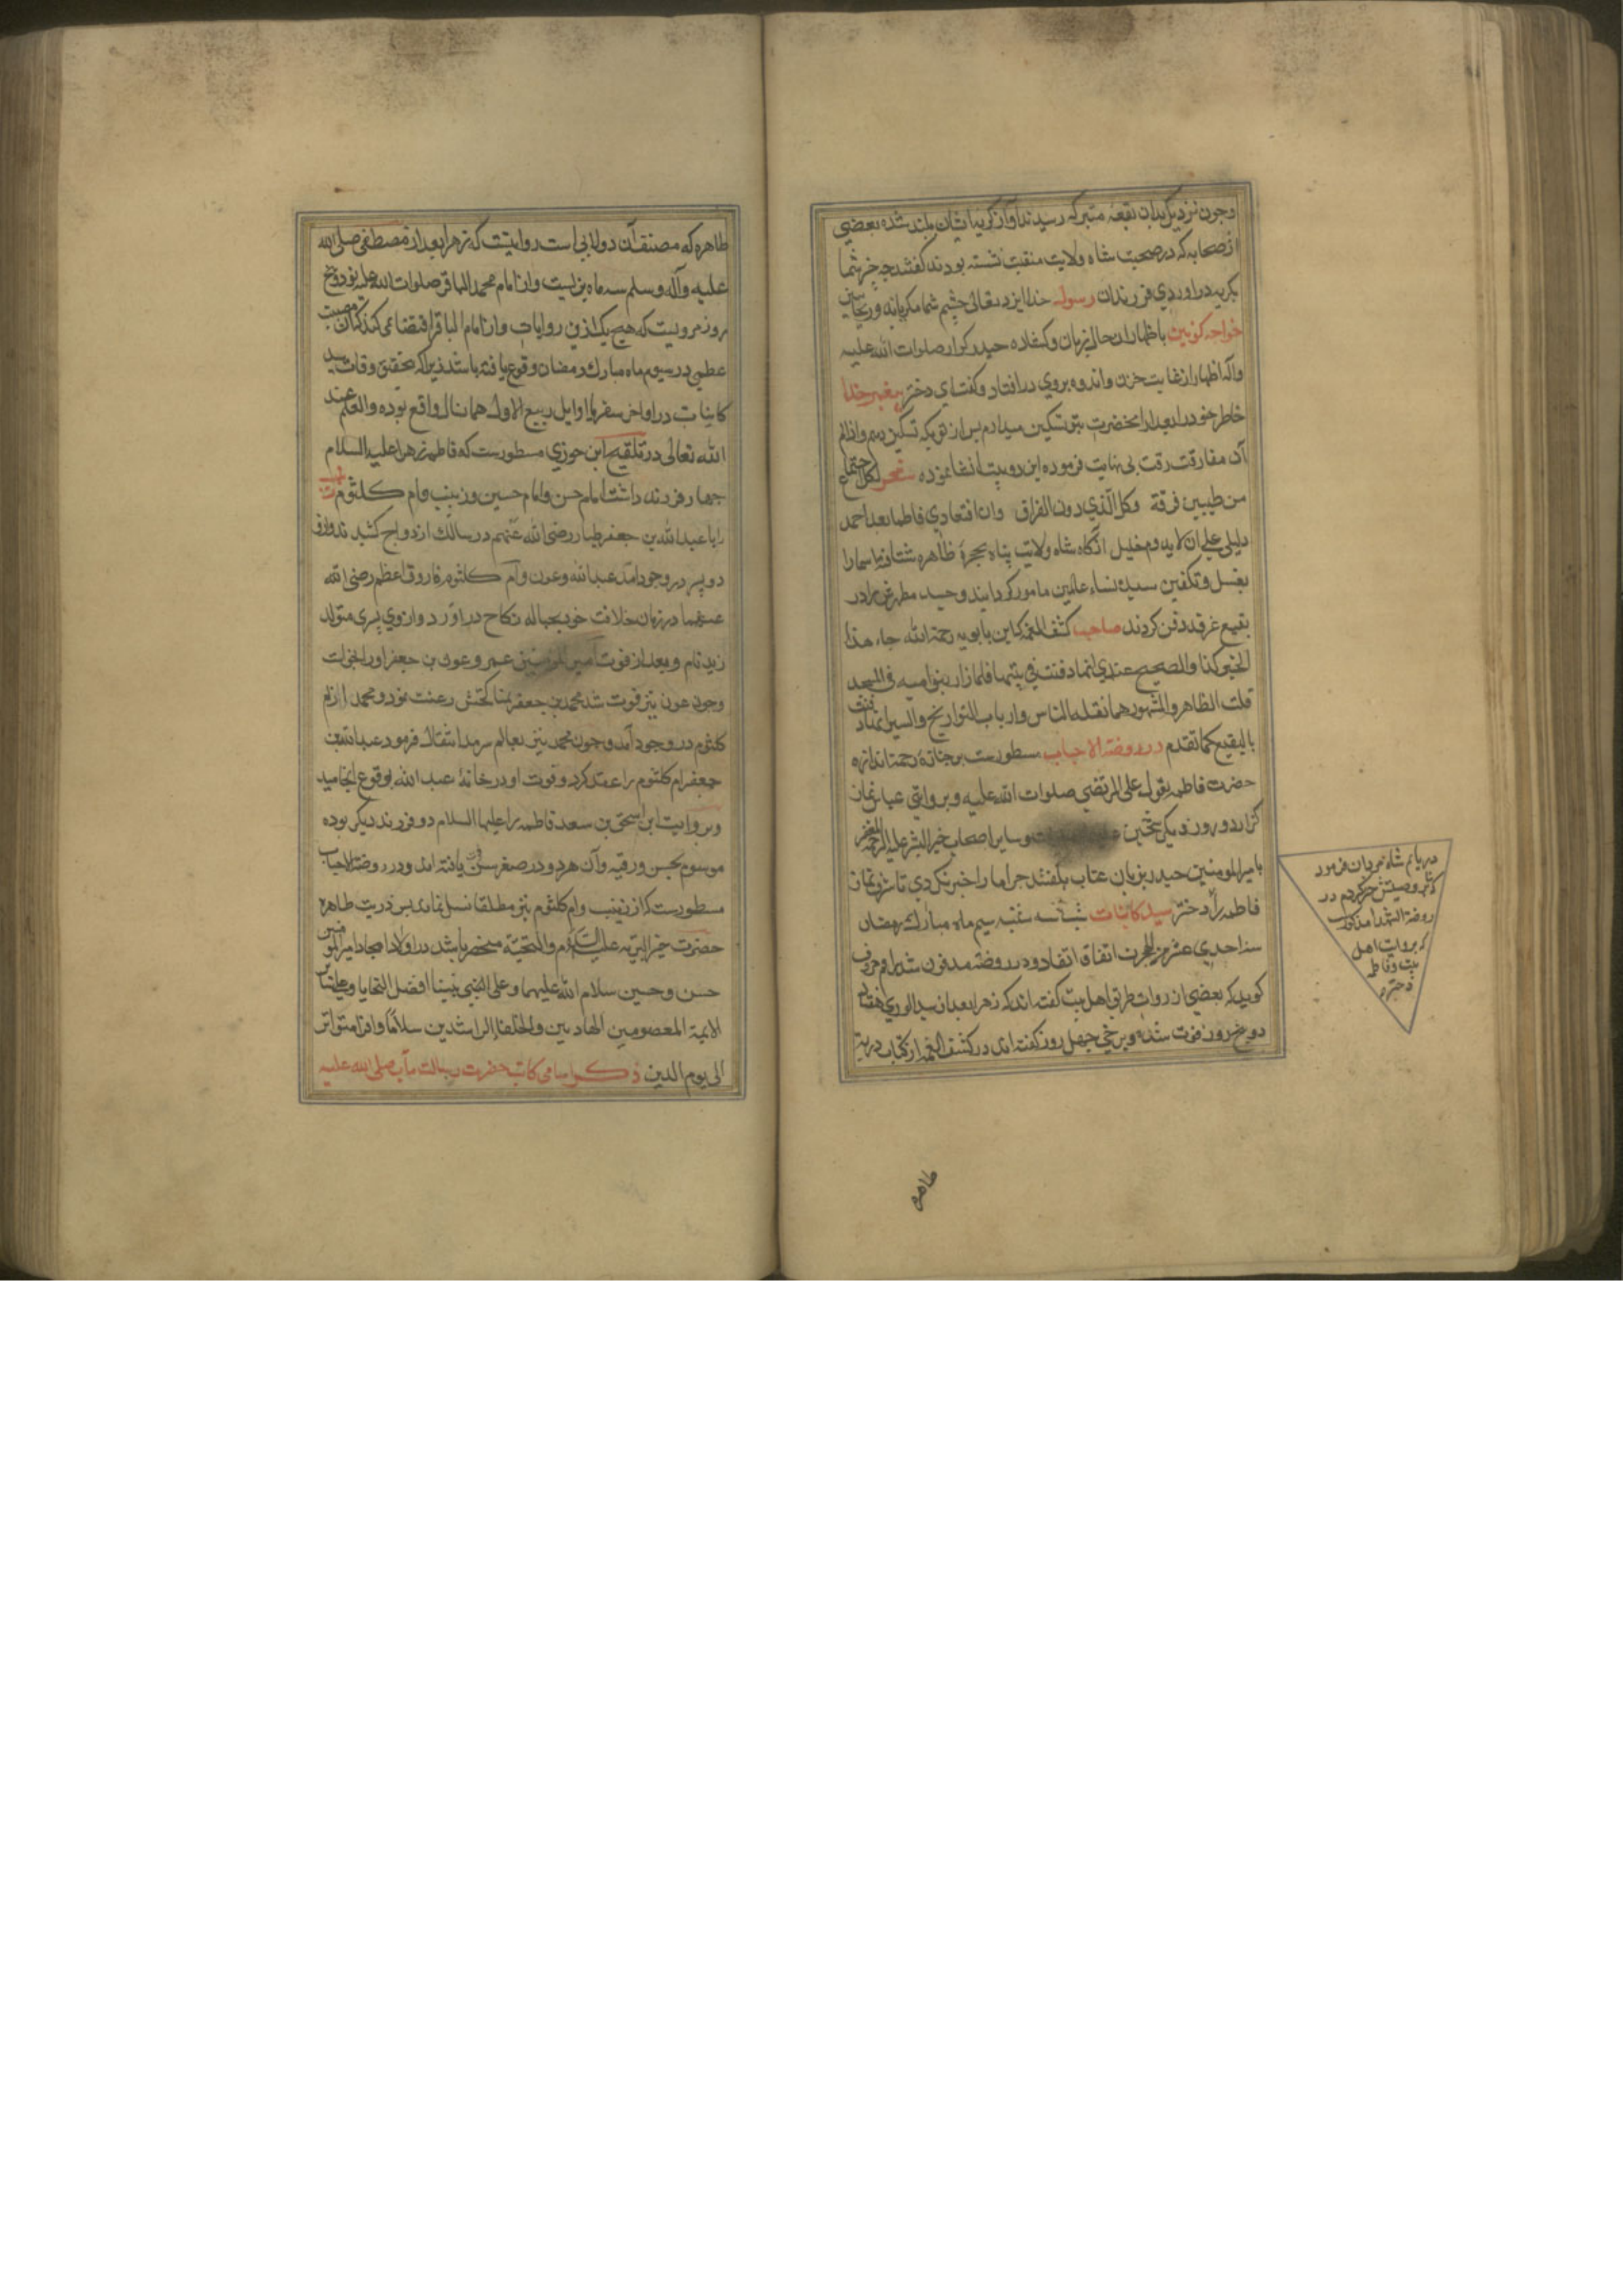 وچون نزدیک بدان بقعه متبرکه رسیدند آواز کریه ایشان بلند شده بعضی
از صحابه که در صحبت شاه ولایت منقبت نشسته بودند کفتند چه چیز شما
بکریه در اوردی فرزندان رسول خدا ایزد تعالی چشم شما مکریاند
خواجه کونین باظهار ان حال زبان وکشاده حیدر کرار صلوات الله علیه
واله اظهار از غایت حزن واندوه بروی در افتاد وکفت ای دختر پیغمبر خدا
خاطر خود را بعد از انحضرت بتو تسکین میدادم پس از تو بکه تسکین دهم واز الم
آن مفارقت رقت بی نهایت فرموده این دو بیت انشا نموده شعر لکل اجتماع
من طیبین فرقة وکل الذی دون الفراق وان افتقادی فاطما بعد احمد
دلیل علی ان لا یدوم خلیل انکاه شاه ولایت پناه بحجرۀ طاهره شتافته اسما را
بغسل وتکفین سیدة نساء عالمین مامور کردانیدند وجسد مطهرش را در
بقیع غرقد دفن کردند صاحب کشف الغمه کابن بابویه رحمة الله جاء هذا
الخبر کذا والصحیح عندی انها دفنت فی بیتها فلما زاد بنو امیه فی المسجد
قلت الظاهر والمشهور مما نقله الناس وارباب التواریخ والسیر انها دفنت
بالبقیع کما تقدم در روضة الاحباب مسطورست بر جنازه رحمت اندازه
حضرت فاطمه بقول علی المرتضی صلوات الله علیه وبروایتی عباس نماز
کزارد و روز دیکر شیخین وسایر اصحاب خیر البشر علیه
با امیر المومنین حیدر بزبان عتاب کفتند چرا ما را خبر نکردی تا شرف نماز
فاطمه را دختر سید کاینات شب سه شنبه سیم ماه مبارک رمضان
سنه احدی عشر من الهجرت اتفاق افتاد ودر روضه مدفون شد
کوید که بعضی از روات طریق اهل بیت کفته اند که زهرا بعد از سید الوری هفتاد
دو روز فوت شده وبرخی چهل روز کفته اند در کشف الغمه از کتاب ذریة
در یابم شاه مردان فرمود
که بنا بر وصیتش چنین کردم در
روضة الشهدا مذکور
که بروایت اهل
بیت وفات فاطمه
طاهره
طاهره که مصنف آن دولابی است روایتست که زهرا بعد از مصطفی صلی الله
علیه وآله وسلم سه ماه بزیست واز امام محمد الباقر صلوات الله علیه نود وپنج
روز مرویست که هیچ یک ازین روایات واز امام الباقر اقتضا می کند که آن مصیبت
عظمی در سیوم ماه مبارک رمضان وقوع یافته باشد زیرا که بتحقیق وفات سید
کاینات در اواخر صفر یا اوایل ربیع الاول همان سال واقع بوده والعلم عند
الله تعالی در تلقیح ابن جوزی مسطورست که فاطمه زهرا علیه السلام
چهار فرزند داشت امام حسن وامام حسین وزینب وام کلثوم زینب
را با عبدالله بن جعفر طیار رضی الله عنهم در سلک ازدواج کشیدند واز او
دو پسر در وجود آمد عبدالله وعون وام کلثوم را فاروق اعظم رضی الله
عنهما در زمان خلافت خود بحباله نکاح در آورد واز وی پسری متولد
زید نام وبعد از فوت امیر المومنین عمر وعون بن جعفر اورا خواست
وچون عون نیز فوت شد محمد بن جعفر بمناکحتش رغبت نمود ومحمد از ام
کلثوم در وجود آمد وچون محمد نیز بعالم سرمد انتقال فرمود عبدالله بن
جعفر ام کلثوم را عقد کرد وفوت او در خانۀ عبد الله بوقوع انجامید
وبروایت ابن اسحق بن سعد فاطمه را علیها السلام دو فرزند دیکر بوده
موسوم بمحسن ورقیه وآن هر دو در صغر سن فوت یافته اند ودر روضة الاحباب
مسطورست که از زینب وام کلثوم نیز مطلقا نسل نماند پس ذریت طاهره
حضرت خیر البریه علیه السلام والتحیة منحصر باشد در اولاد امجاد امیر المومنین
حسن وحسین سلام الله علیهما وعلی النبی نبینا افضل التحایا وعلی
الایمة المعصومین الهادیین والخلفا الراشدین سلاما وافرا متواتر
الی یوم الدین ذکر اسامی کاتب حضرت رسالت مآب صلی الله علیه